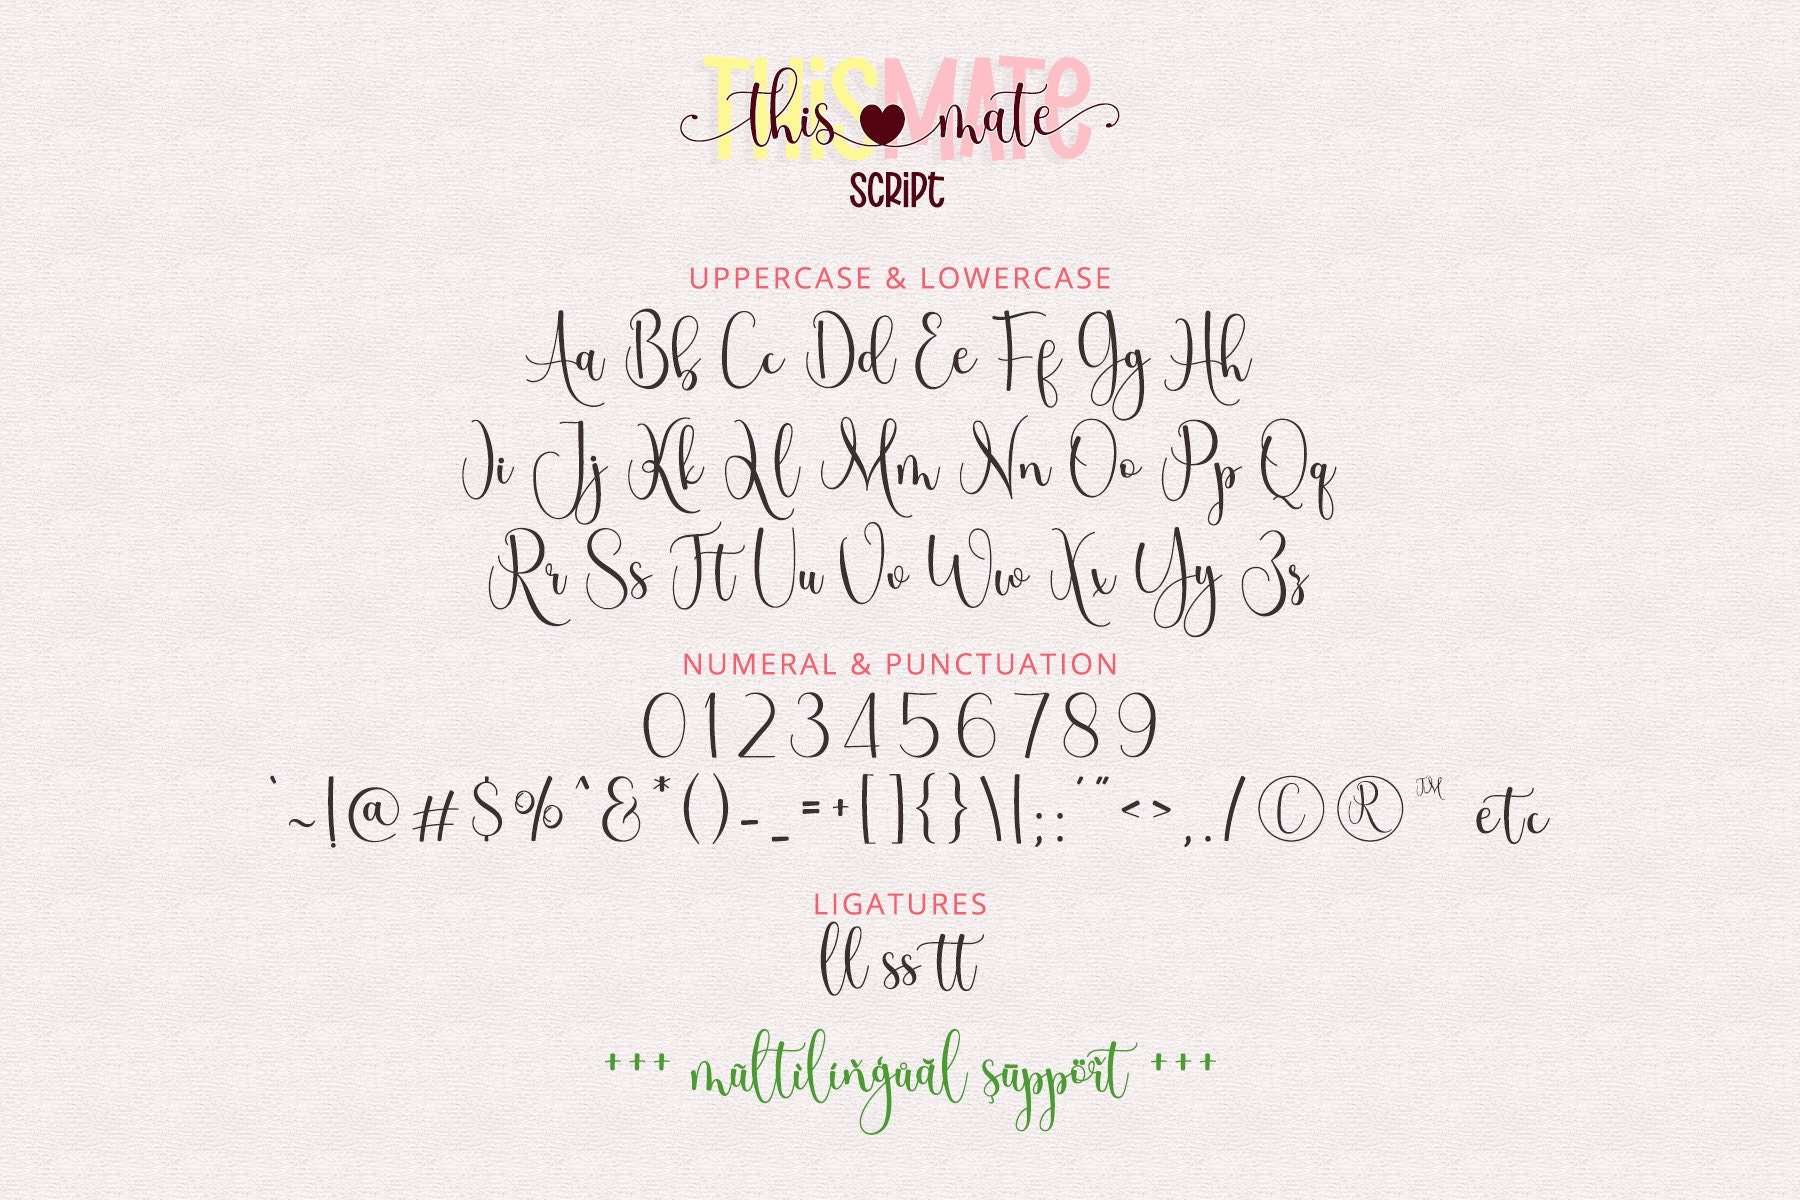 THiSMATe
this mate
SCRiPt
UPPERCASE & LOWERCASE
Aa Bb Cc Dd Ee Ff Gg Hh
Ii Jj Kk Ll Mm Nn Oo Pp Qq
Rr Ss Tt Uu Vv Ww Xx Yy Zz
NUMERAL & PUNCTUATION
0123456789
`~!@#$%^&*()-_=+[]{}\|;:'"<>,./©®™ etc
LIGATURES
ll ss tt
+++ mũltìlíňġůăl şūppöřt +++